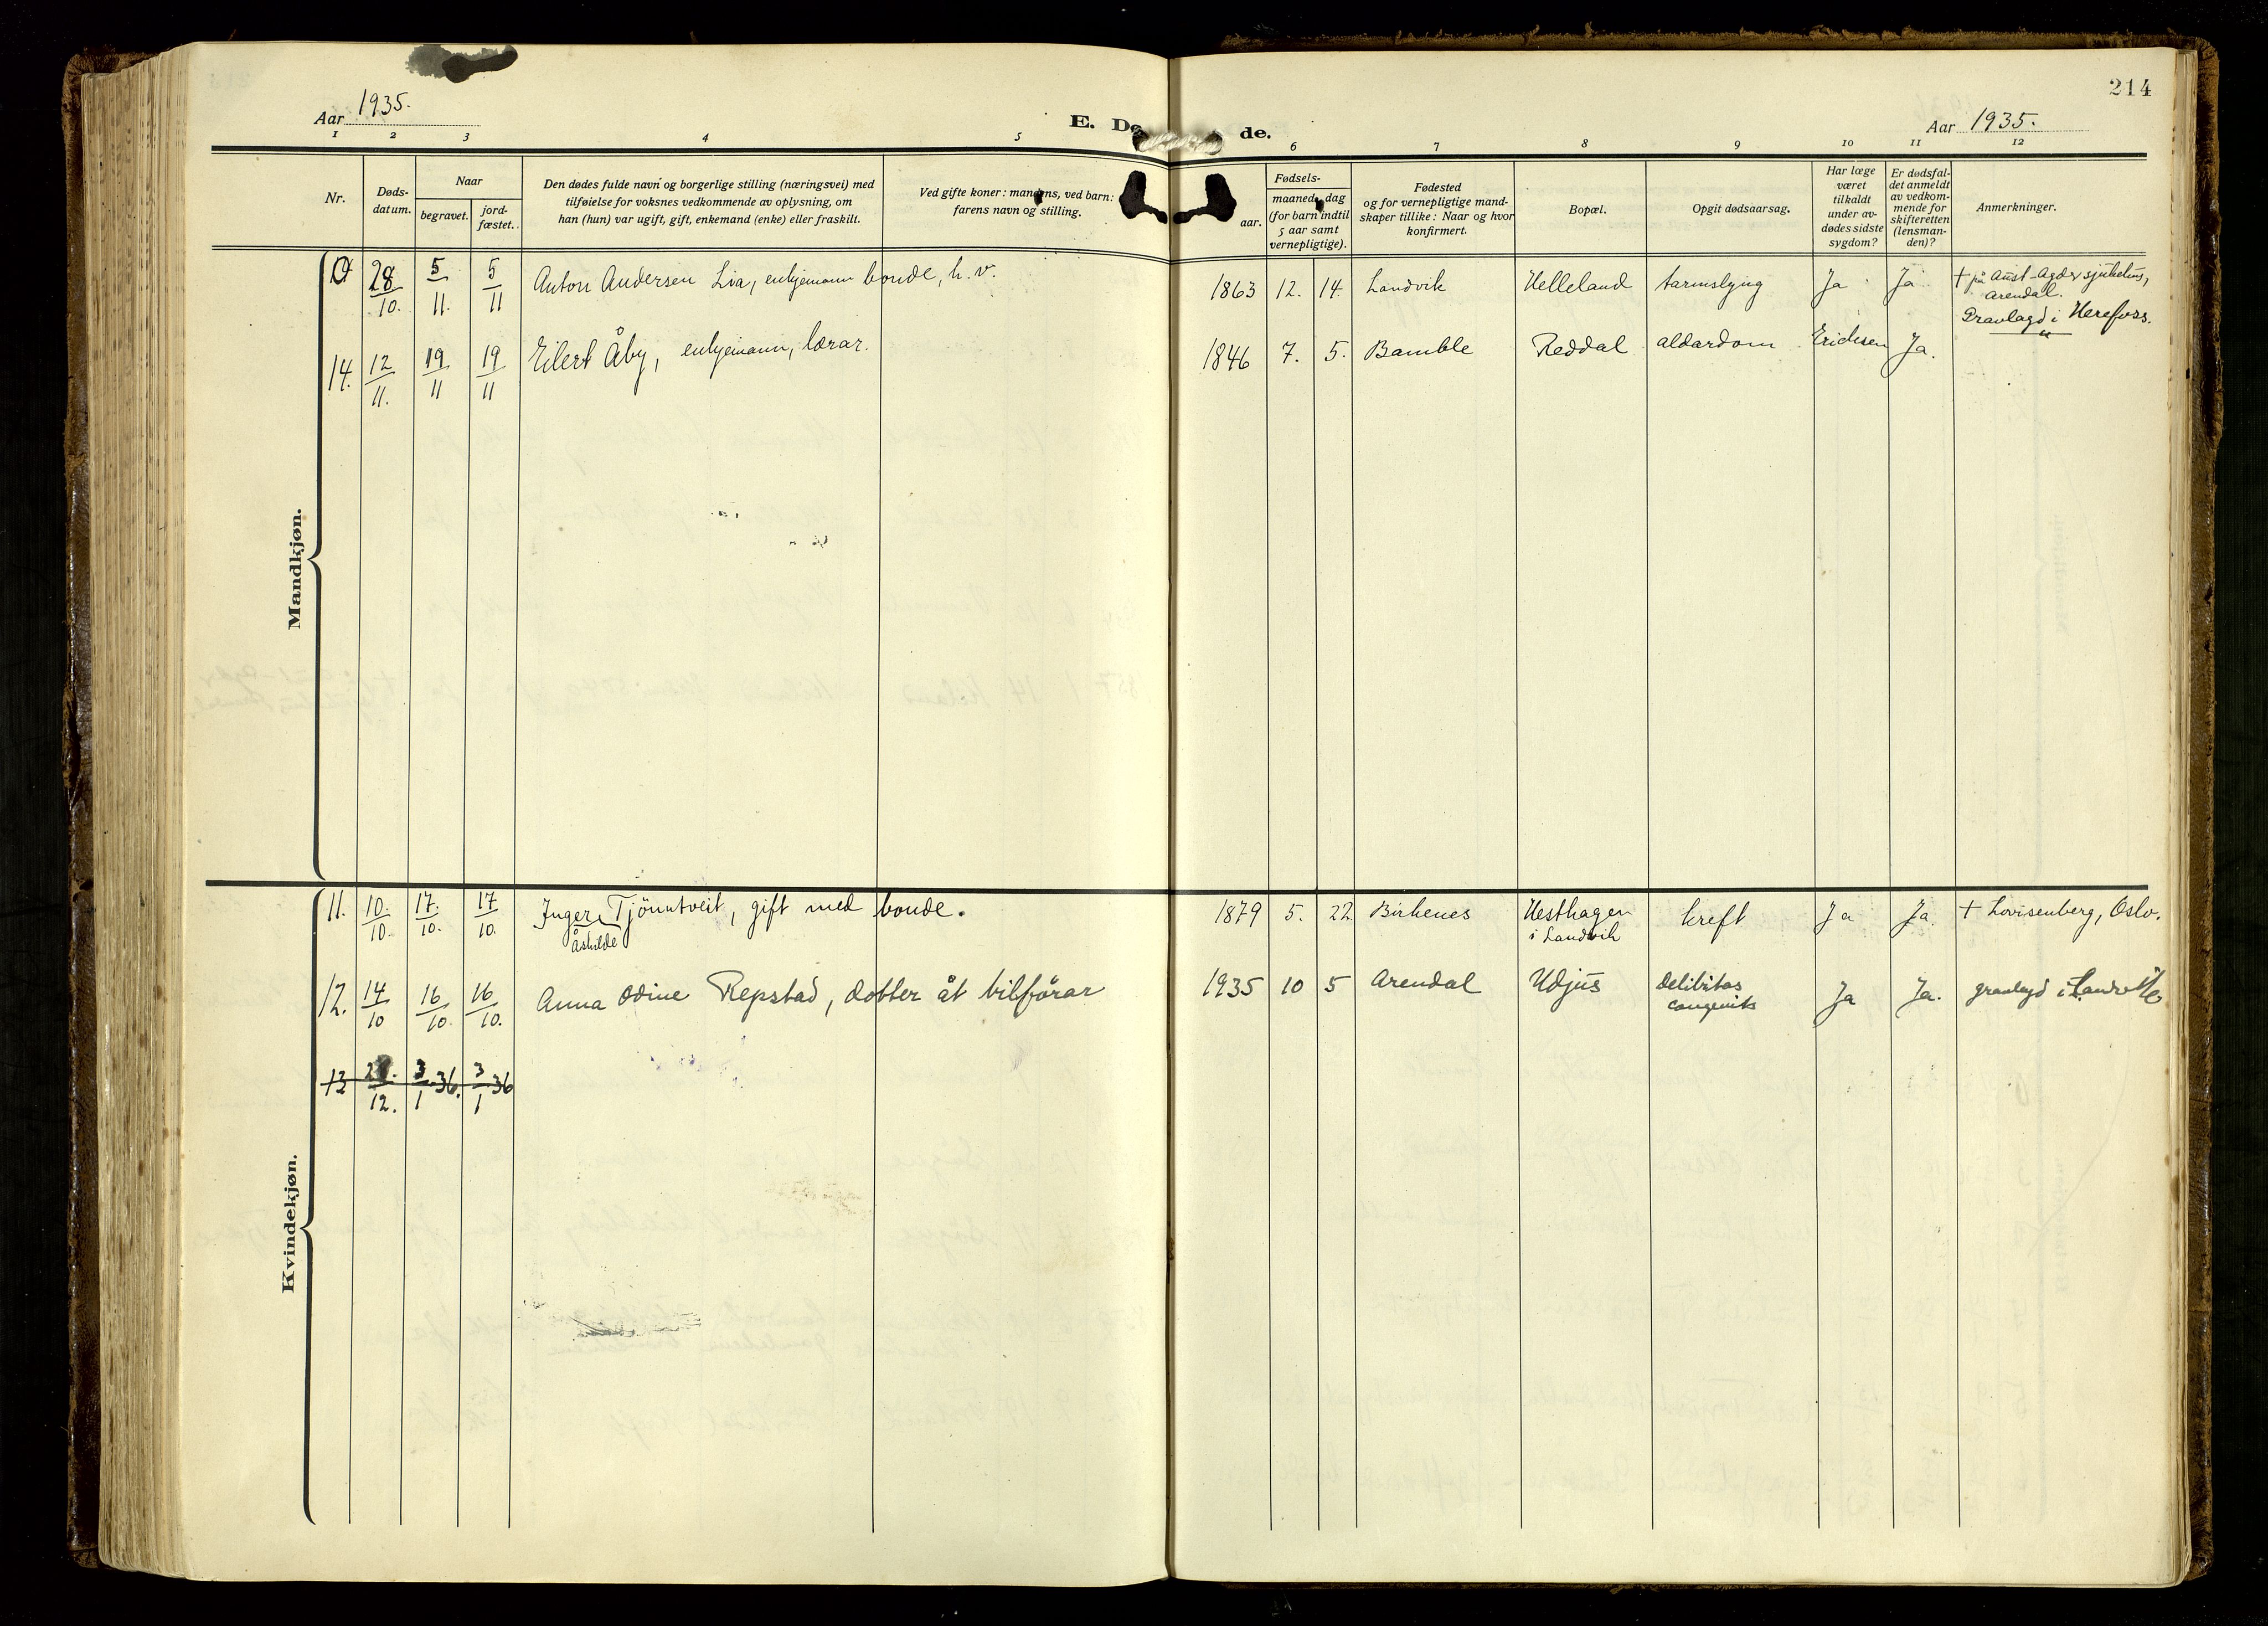 214
Aar 1935.
E. Dø de.
Aar 1935.
1 2 3 4 5 6 7 8 9 10 11 12
Nr.
Døds-
datum.
Naar
begravet.
jord-
fæstet.
Den dødes fulde navn og borgerlige stilling (næringsvei) med
tilføielse for voksnes vedkommende av oplysning, om
han (hun) var ugift, gift, enkemand (enke) eller fraskilt.
Ved gifte koner: mandens, ved barn:
farens navn og stilling.
Fødsels-
aar.
maaned, dag
(for barn indtil
5 aar samt
vernepligtige).
Fødested
og for vernepligtige mand-
skaper tillike: Naar og hvor
konfirmert.
Bopæl.
Opgit dødsaarsag.
Har læge
været
tilkaldt
under av-
dødes sidste
sygdom?
Er dødsfal-
det anmeldt
av vedkom-
mende for
skifteretten
(lensman-
den)?
Anmerkninger.
Mandkjøn.
28/10. 5/11. 5/11 Anton Andersen Lia, enkjemann bonde, h. v. 1863 12. 14. Landvik Helleland tarmslyng Ja Ja † på Aust-Agder sjukehus,
Arendal.
Gravlagd i Herefoss.
14. 12/11. 19/11 19/11 Eilert Åby, enkjemann, lærar. 1846 7. 5. Bamble Reddal aldardom Ericksen Ja. "
Kvindekjøn.
11. 10./10. 17./10. 17/10. Inger Tjönntveit, gift med bonde. 1879 5. 22 Birkenes Hesthagen kreft Ja Ja. † Lovisenberg, Oslo.
Åshilde i Landvik
12. 14/10 16/10. 16/10. Anna Odine Repstad, dotter åt bilförar 1935 10 5 Arendal Udjus Delibitas Ja Ja. gravlagd i Landvik
congenita
13 2 /12. 3/1 36. 3/1 36